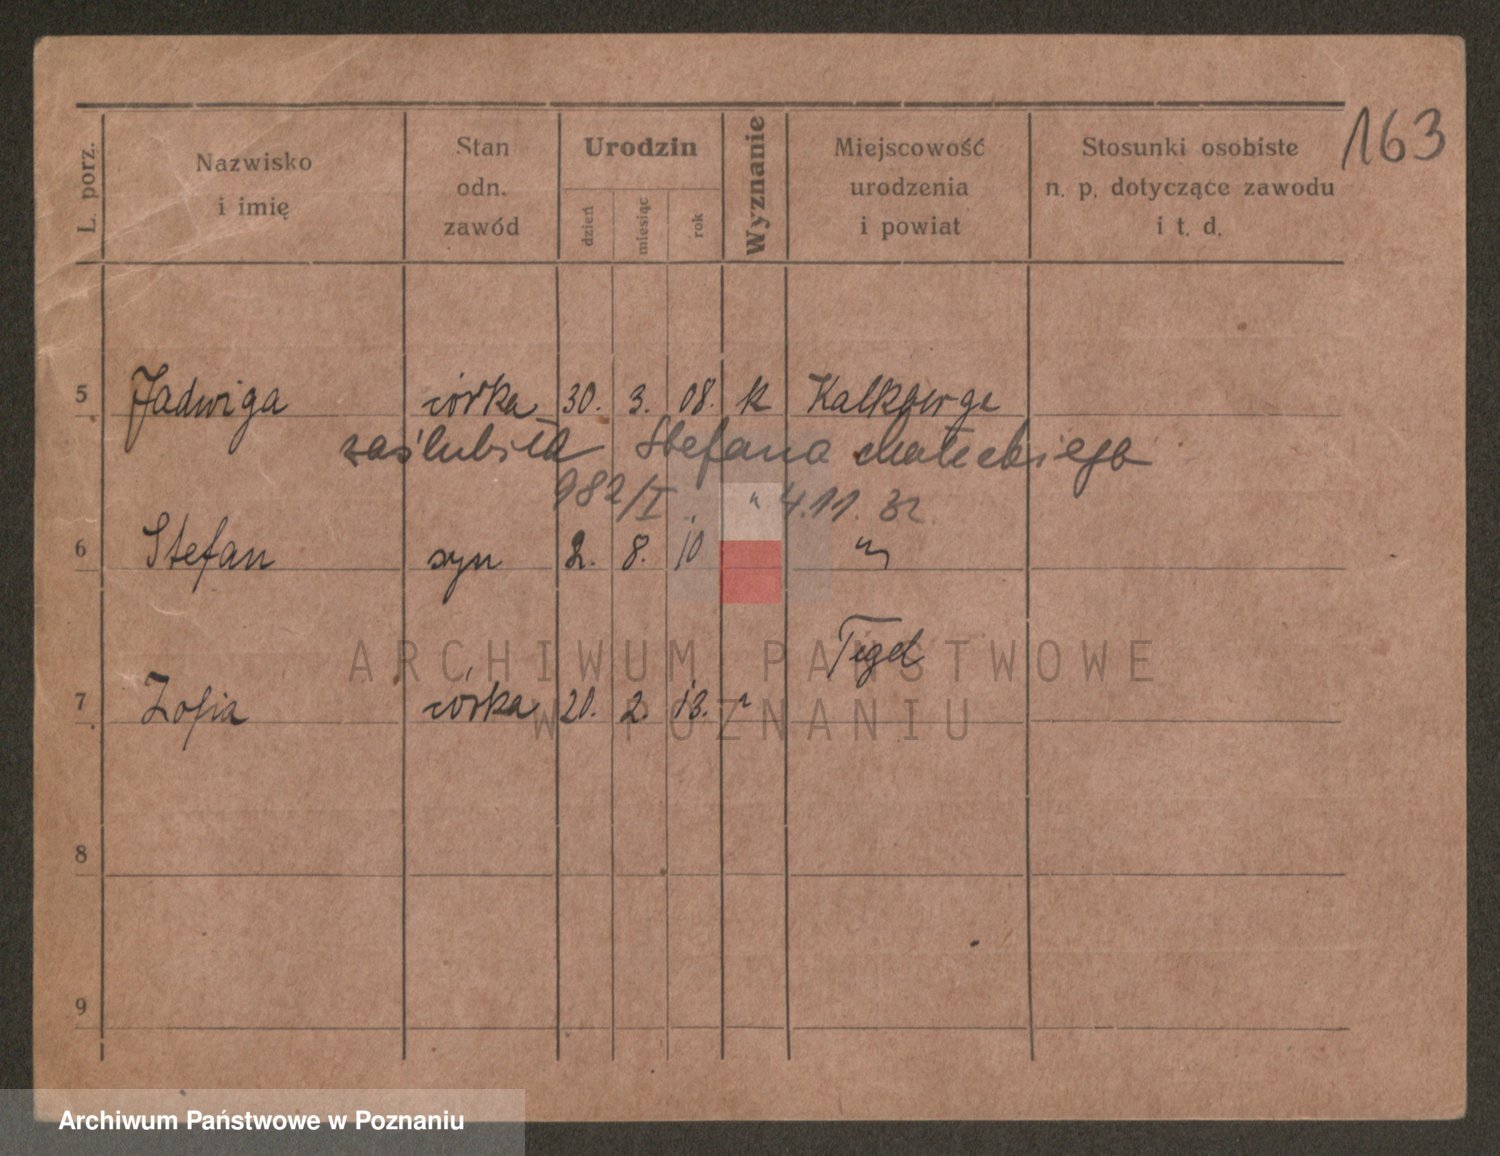 163
L. porz.
Nazwisko
i imię
Stan
odn.
zawód
Urodzin
dzień
miesiąc
rok
Wyznanie
Miejscowość
urodzenia
i powiat
Stosunki osobiste
n. p. dotyczące zawodu
i t. d.
5 Jadwiga córka 30. 3. 08. k Kalkberge
zaślubiła Stefana Małeckiego
982/I. 4.11. 32.
6 Stefan syn 2. 8. 10 " "
Tegel
7 Zofia córka 20. 2. 13. "
8
9
ARCHIWUM PAŃSTWOWE
W POZNANIU
Archiwum Państwowe w Poznaniu